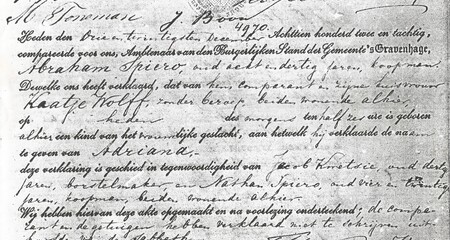 M Tonsman J. Boon
4970.
Heden den drieentwintigsten December Achttien honderd twee en tachtig,
compareerde voor ons, Ambtenaar van den Burgerlijken Stand der Gemeente 's Gravenhage,
Abraham Spiero oud acht endertig jaren, koopman.
Dewelke ons heeft verklaard, dat van hem comparant en zijne huisvrouw
Kaatje Wolff, zonder beroep, beiden wonende alhier
op heden des morgens ten half zes ure is geboren
alhier een kind van het vrouwelijke geslacht, aan hetwelk hij verklaarde de naam
te geven van Adriana.
deze verklaring is geschied in tegenwoordigheid van Jacob Knetsie, oud dertig
jaren, borstelmaker, en Nathan Spiero, oud vier en twintig
jaren, koopman, beiden wonende alhier.
Wij hebben hiervan deze akte opgemaakt en na voorlezing onderteekend; de compa-
rant en de getuigen hebben verklaard niet te schrijven uit